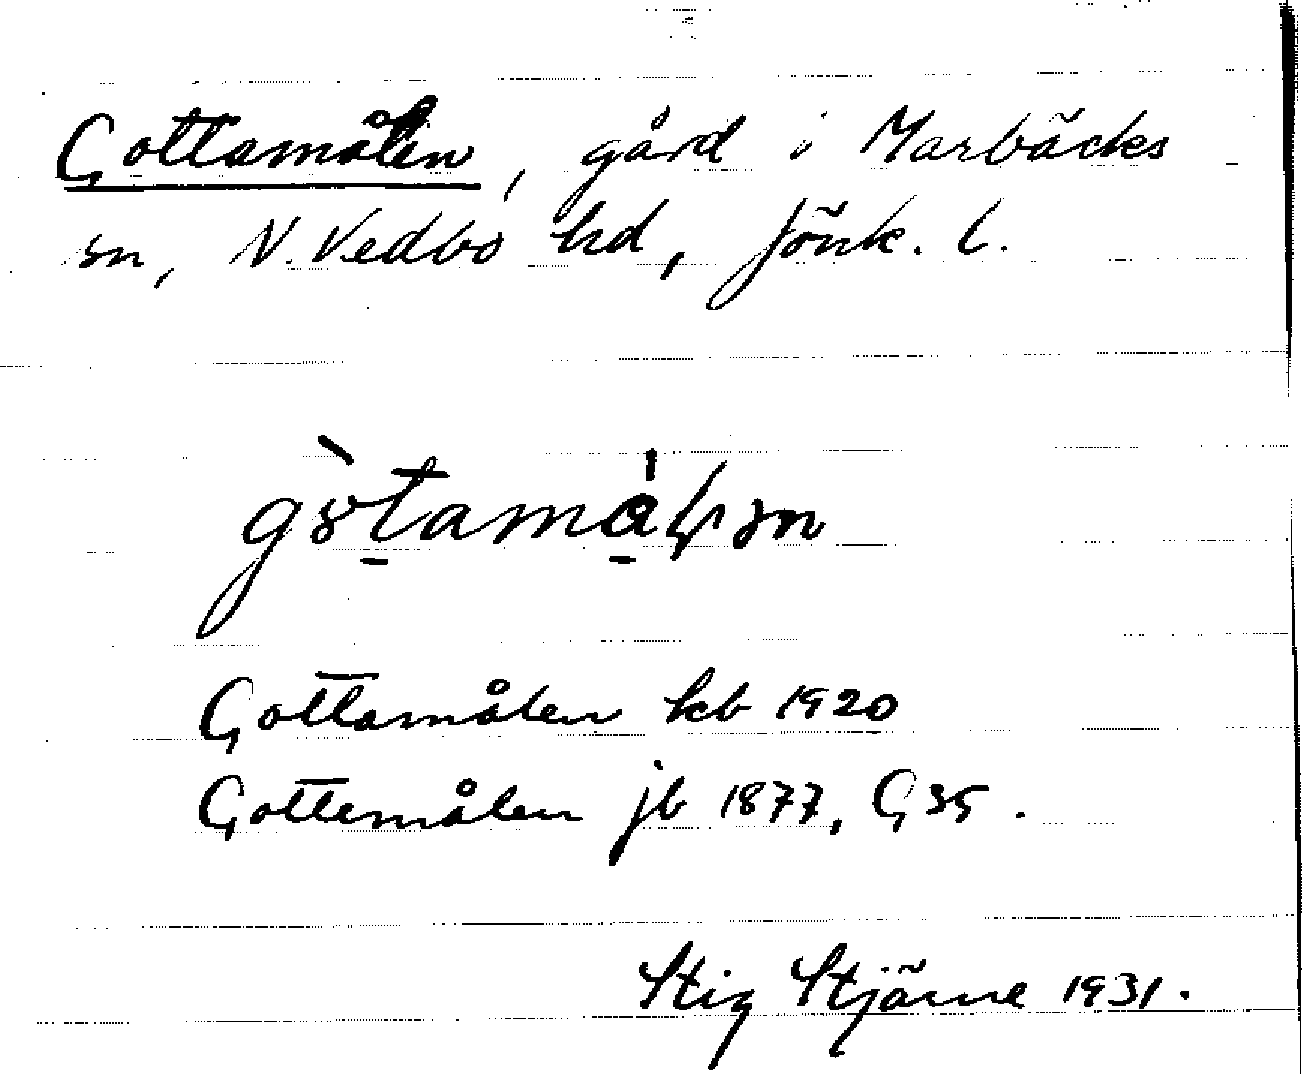 Gottamålen, gård i Marbäcks
sn, N. Vedbo hd, Jönk. l.
Gottamålen kb 1920
Gottemålen jb 1877, G 35.
Stig Stjärne 1931.